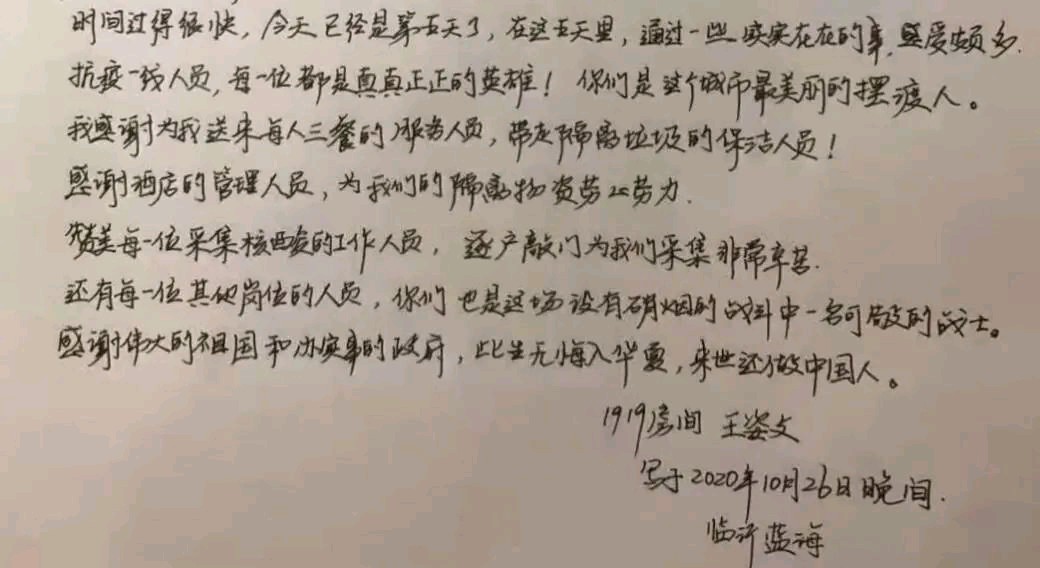 时间过得很快，今天已经是第五天了，在这五天里，通过一些实实在在的事，感受颇多.
抗疫一线人员，每一位都是真真正正的英雄！你们是这个城市最美丽的摆渡人。
我感谢为我送来每人三餐的服务人员，带走隔离垃圾的保洁人员！
感谢酒店的管理人员，为我们的隔离物资劳心劳力.
赞美每一位采集核酸的工作人员，逐户敲门为我们采集非常辛苦.
还有每一位其他岗位的人员，你们也是这场没有硝烟的战斗中一名可敬的战士。
感谢伟大的祖国和办实事的政府，此生无悔入华夏，来世还做中国人。
1919房间 王姿文
写于2020年10月26日晚间.
临沂蓝海